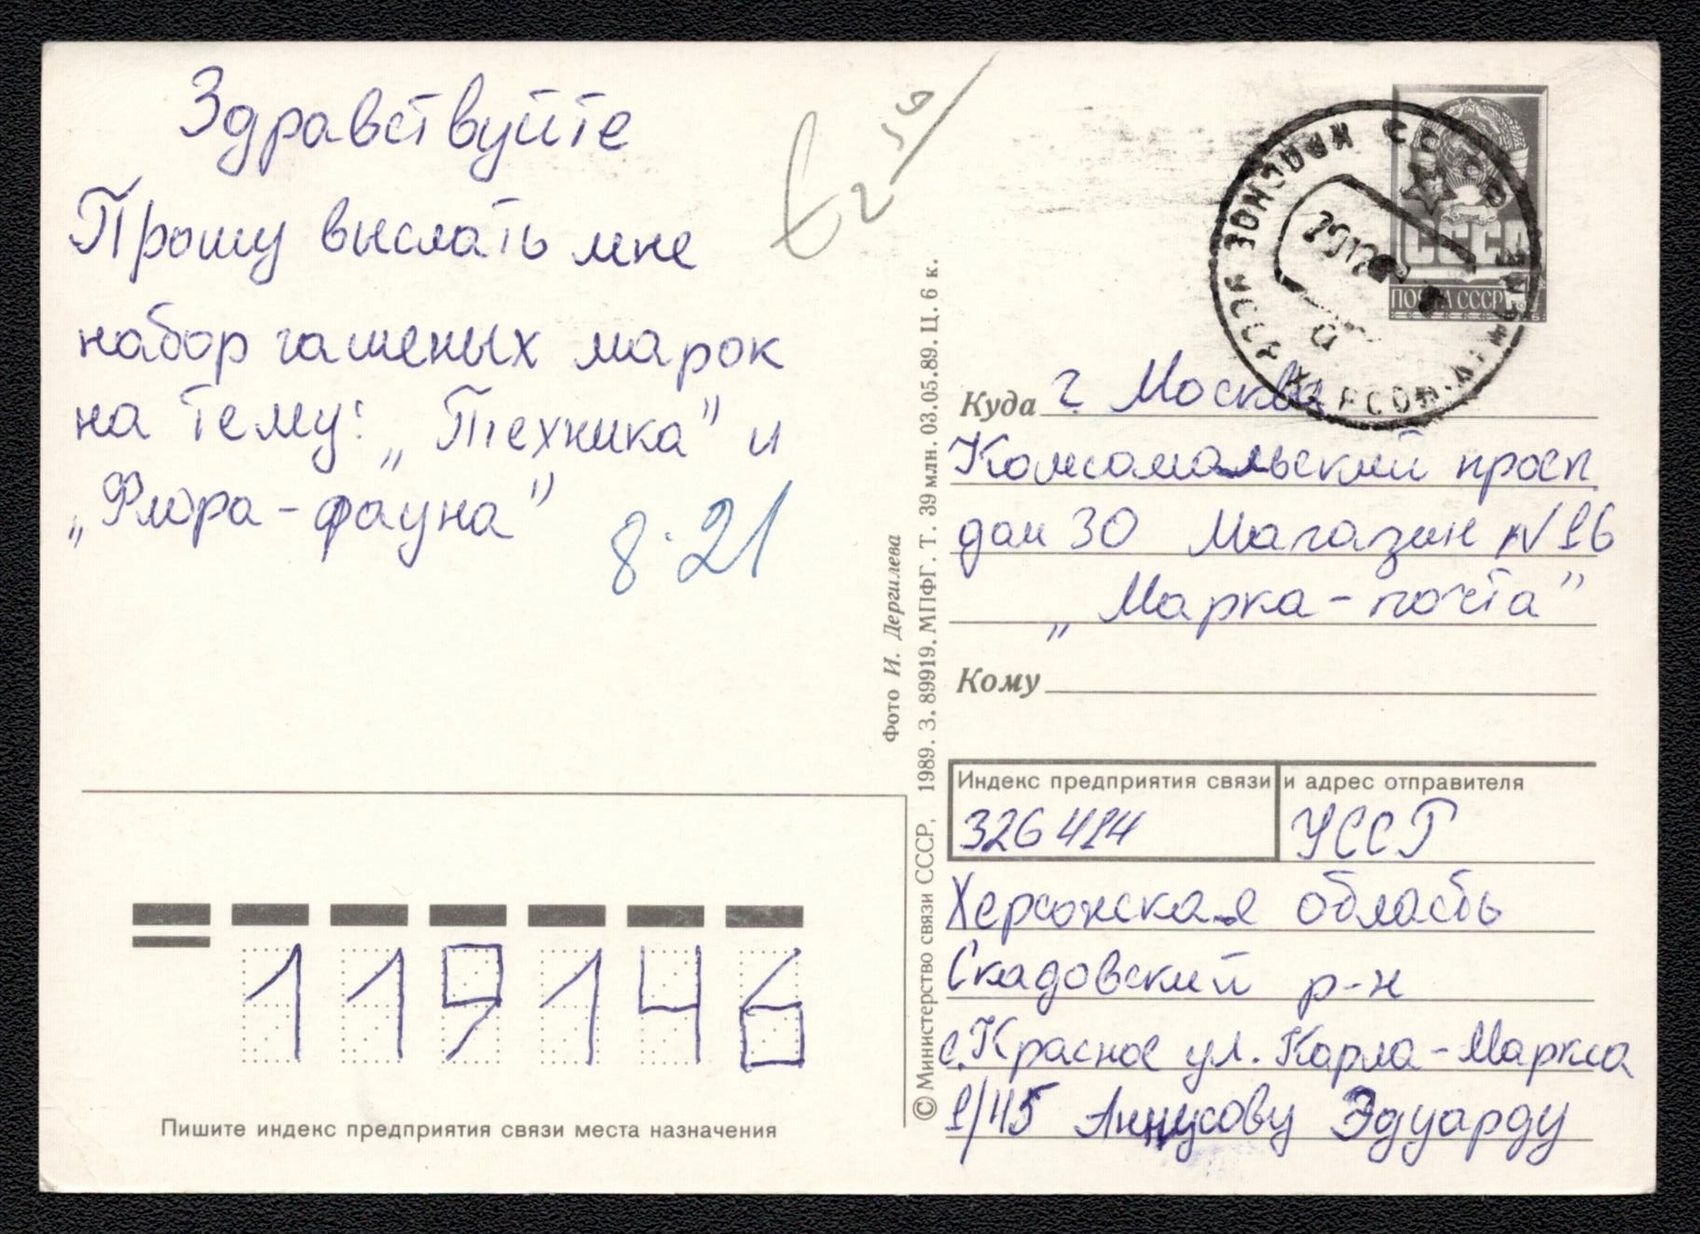 Здравствуйте
Прошу выслать мне
набор гашеных марок
на тему: „Техника” и
„Флора-фауна”
8·21
ПОЧТА СССР
Куда г. Москва
Комсомальский просп
дом 30 Магазин №16
„Марка-почта”
Кому
Индекс предприятия связи и адрес отправителя
326414 УССР
Херсонская область
Скадовский р-н
с.Красное ул. Карла-Маркса
1/45 Эдуарду
119146
Пишите индекс предприятия связи места назначения
Фото И. Дергилева
© Министерство связи СССР. 1989. З. 89919. МПФГ. Т. 39 млн. 03.05.89. Ц. 6 к.